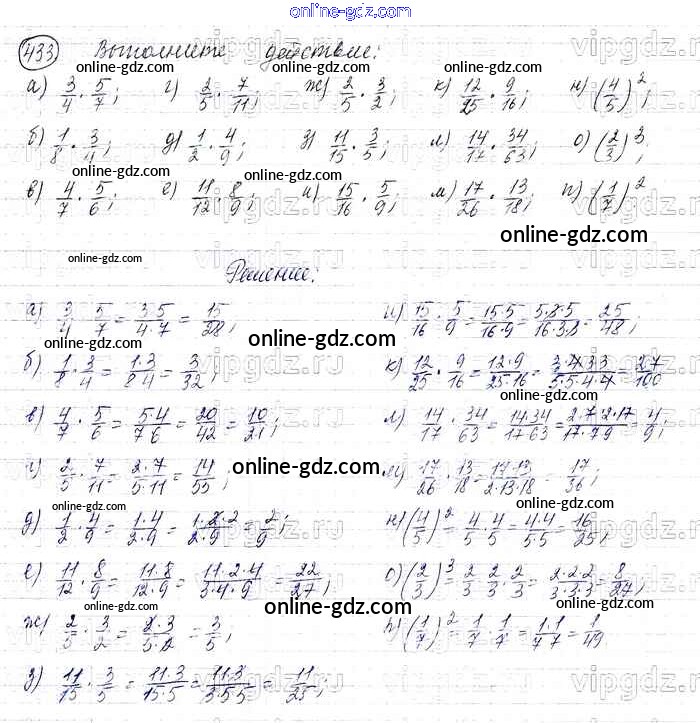 online-gdz.com
433 Выполните действие:
а) 3/4 · 5/7; г) 2/5 · 7/11; ж) 2/5 · 3/2; к) 12/25 · 9/16; н) (4/5)²;
б) 1/8 · 3/4; д) 1/2 · 4/9; з) 11/15 · 3/5; л) 14/17 · 34/63; о) (2/3)³;
в) 4/7 · 5/6; е) 11/12 · 8/9; и) 15/16 · 5/9; м) 17/26 · 13/18; п) (1/7)²
Решение:
а) 3/4 · 5/7 = 3·5/4·7 = 15/28;
б) 1/8 · 3/4 = 1·3/8·4 = 3/32;
в) 4/7 · 5/6 = 5·4/7·6 = 20/42 = 10/21;
г) 2/5 · 7/11 = 2·7/5·11 = 14/55;
д) 1/2 · 4/9 = 1·4/2·9 = 1·2·2/2·9 = 2/9;
е) 11/12 · 8/9 = 11·8/12·9 = 11·2·4/3·4·9 = 22/27;
ж) 2/5 · 3/2 = 2·3/5·2 = 3/5;
з) 11/15 · 3/5 = 11·3/15·5 = 11·3/3·5·5 = 11/25;
и) 15/16 · 5/9 = 15·5/16·9 = 5·3·5/16·3·3 = 25/48;
к) 12/25 · 9/16 = 12·9/25·16 = 3·4·3·3/5·5·4·4 = 27/100
л) 14/17 · 34/63 = 14·34/17·63 = 2·7·2·17/17·7·9 = 4/9;
м) 17/26 · 13/18 = 17·13/2·13·18 = 17/36;
н) (4/5)² = 4/5 · 4/5 = 4·4/5·5 = 16/25;
о) (2/3)³ = 2/3 · 2/3 · 2/3 = 2·2·2/3·3·3 = 8/27;
п) (1/7)² = 1/7 · 1/7 = 1·1/7·7 = 1/49
vipgdz.ru
online-gdz.com